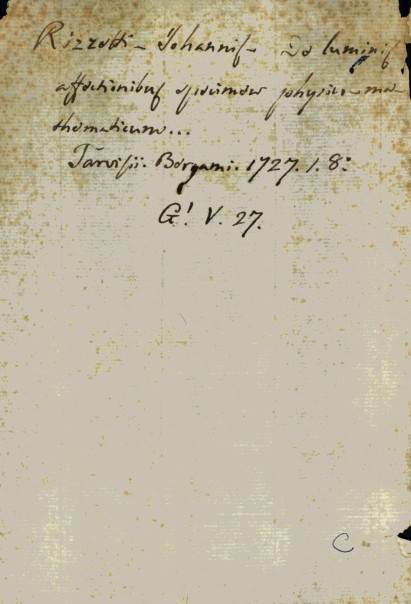 Rizzetti - Johannis - De luminis
affectionibus specimen physico-ma
thematicum...
Tarvisii. Bergami. 1727. 1. 8:
G! V. 27.
C